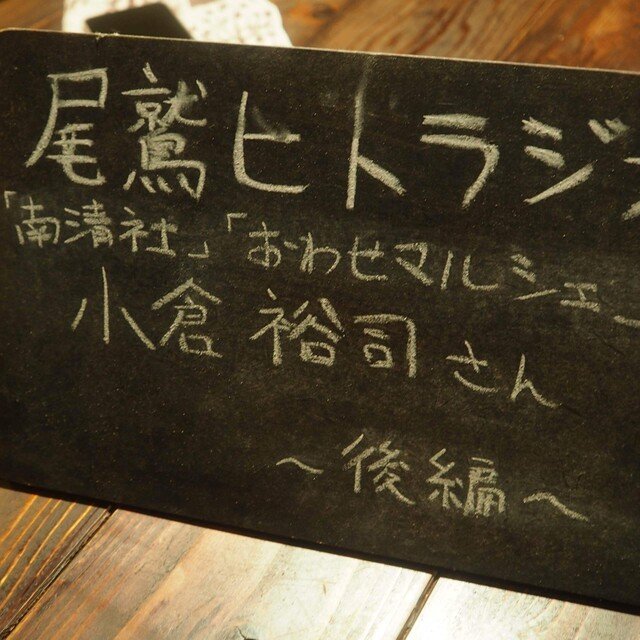 尾鷲ヒトラジ
「南清社」「おわせマルシェ
小倉 裕司さん
~後編~